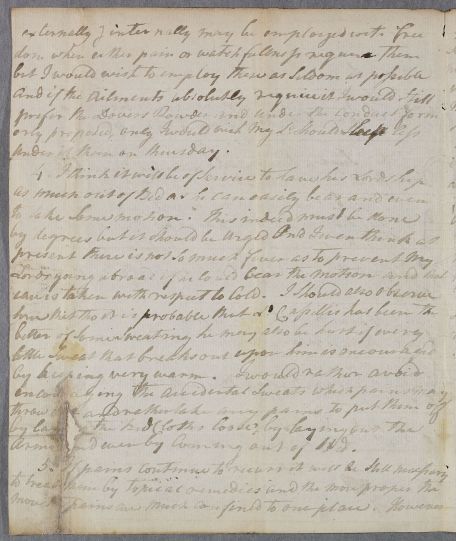 externally & internally may be employed with free
dom when either pain or watchfullness require them
but I would wish to employ them as seldom as possible
and if the Ailments absolutely require it I would still
prefer the Dovers Powder and under the conduct form
erly proposed, only I would wish My Ld should sleep less
under it than on thursday.
4. I think it will be of Service to have his Lordship
as much out of Bed as he can easily bear and even
to take some motion. This indeed must be done
by degrees but it should be urged and I even think at
present there is not so much fever as to prevent My
Lords going abroad if he could bear the motion and that
care is taken with respect to Cold. I should also observe
here that tho it is probable that Ld Capillis has been the
better of some sweating he may also be hurt if every
little sweat that breaks out upon him is encouraged
by keeping very warm. I would rather avoid
encouraging the accidental Sweats which pains may
throw out and rather take any pains to put them off
by the Bed Cloths loose by laying out the
Arms and even by coming out of Bed.
5. If pains continue to recurr it will be still necessary
to treat them by topical remedies and the more proper the
more pains are much confined to one place. However